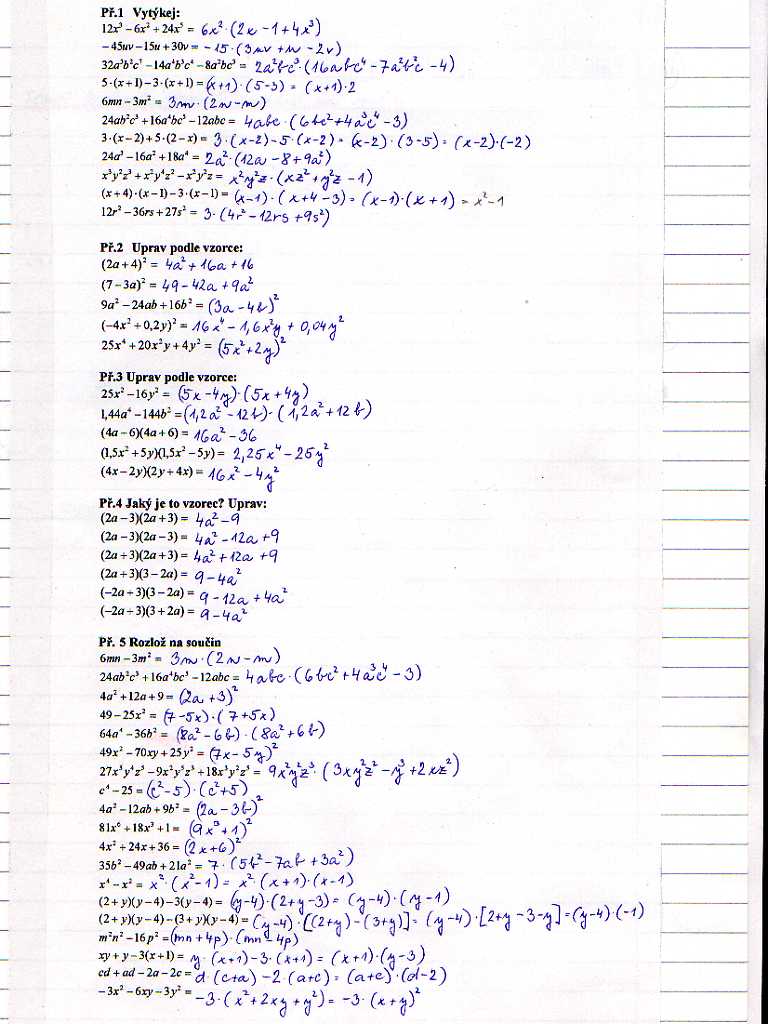 Př.1 Vytýkej:
12x³ − 6x² + 24x⁵ = 6x² · (2x − 1 + 4x³)
− 45uv − 15u + 30v = − 15 · (3uv + u − 2v)
32a³b²c⁷ − 14a⁴b³c⁴ − 8a²bc³ = 2a²bc³ · (16abc⁴ − 7a²b²c − 4)
5 · (x + 1) − 3 · (x + 1) = (x+1) · (5−3) = (x+1) · 2
6mn − 3m² = 3m · (2n − m)
24ab²c³ + 16a⁴bc⁵ − 12abc = 4abc · (6bc² + 4a³c⁴ − 3)
3 · (x − 2) + 5 · (2 − x) = 3 · (x−2) − 5 · (x−2) = (x−2) · (3−5) = (x−2) · (−2)
24a³ − 16a² + 18a⁴ = 2a² · (12a − 8 + 9a²)
x³y²z³ + x²y⁴z² − x²y²z = x²y²z · (xz² + y²z − 1)
(x + 4) · (x − 1) − 3 · (x − 1) = (x−1) · (x+4−3) = (x−1) · (x+1) = x²−1
12r² − 36rs + 27s² = 3 · (4r² − 12rs + 9s²)
Př.2 Uprav podle vzorce:
(2a + 4)² = 4a² + 16a + 16
(7 − 3a)² = 49 − 42a + 9a²
9a² − 24ab + 16b² = (3a − 4b)²
(−4x² + 0,2y)² = 16x⁴ − 1,6x²y + 0,04y²
25x⁴ + 20x²y + 4y² = (5x² + 2y)²
Př.3 Uprav podle vzorce:
25x² − 16y² = (5x − 4y) · (5x + 4y)
1,44a⁴ − 144b² = (1,2a² − 12b) · (1,2a² + 12b)
(4a − 6)(4a + 6) = 16a² − 36
(1,5x² + 5y)(1,5x² − 5y) = 2,25x⁴ − 25y²
(4x − 2y)(2y + 4x) = 16x² − 4y²
Př.4 Jaký je to vzorec? Uprav:
(2a − 3)(2a + 3) = 4a² − 9
(2a − 3)(2a − 3) = 4a² − 12a + 9
(2a + 3)(2a + 3) = 4a² + 12a + 9
(2a + 3)(3 − 2a) = 9 − 4a²
(−2a + 3)(3 − 2a) = 9 − 12a + 4a²
(−2a + 3)(3 + 2a) = 9 − 4a²
Př. 5 Rozlož na součin
6mn − 3m² = 3m · (2n − m)
24ab²c³ + 16a⁴bc⁵ − 12abc = 4abc · (6bc² + 4a³c⁴ − 3)
4a² + 12a + 9 = (2a + 3)²
49 − 25x² = (7 − 5x) · (7 + 5x)
64a⁴ − 36b² = (8a² − 6b) · (8a² + 6b)
49x² − 70xy + 25y² = (7x − 5y)²
27x³y⁴z⁵ − 9x²y⁵z³ + 18x³y²z⁵ = 9x²y²z³ · (3xy²z² − y³ + 2xz²)
c⁴ − 25 = (c² − 5) · (c² + 5)
4a² − 12ab + 9b² = (2a − 3b)²
81x⁶ + 18x³ + 1 = (9x³ + 1)²
4x² + 24x + 36 = (2x + 6)²
35b² − 49ab + 21a² = 7 · (5b² − 7ab + 3a²)
x⁴ − x² = x² · (x² − 1) = x² · (x+1) · (x−1)
(2 + y)(y − 4) − 3(y − 4) = (y−4) · (2+y−3) = (y−4) · (y−1)
(2 + y)(y − 4) − (3 + y)(y − 4) = (y−4) · [(2+y) − (3+y)] = (y−4) · [2+y−3−y] = (y−4) · (−1)
m²n² − 16p² = (mn + 4p) · (mn − 4p)
xy + y − 3(x + 1) = y · (x+1) − 3 · (x+1) = (x+1) · (y−3)
cd + ad − 2a − 2c = d · (c+a) − 2 · (a+c) = (a+c) · (d−2)
− 3x² − 6xy − 3y² = −3 · (x² + 2xy + y²) = −3 · (x+y)²